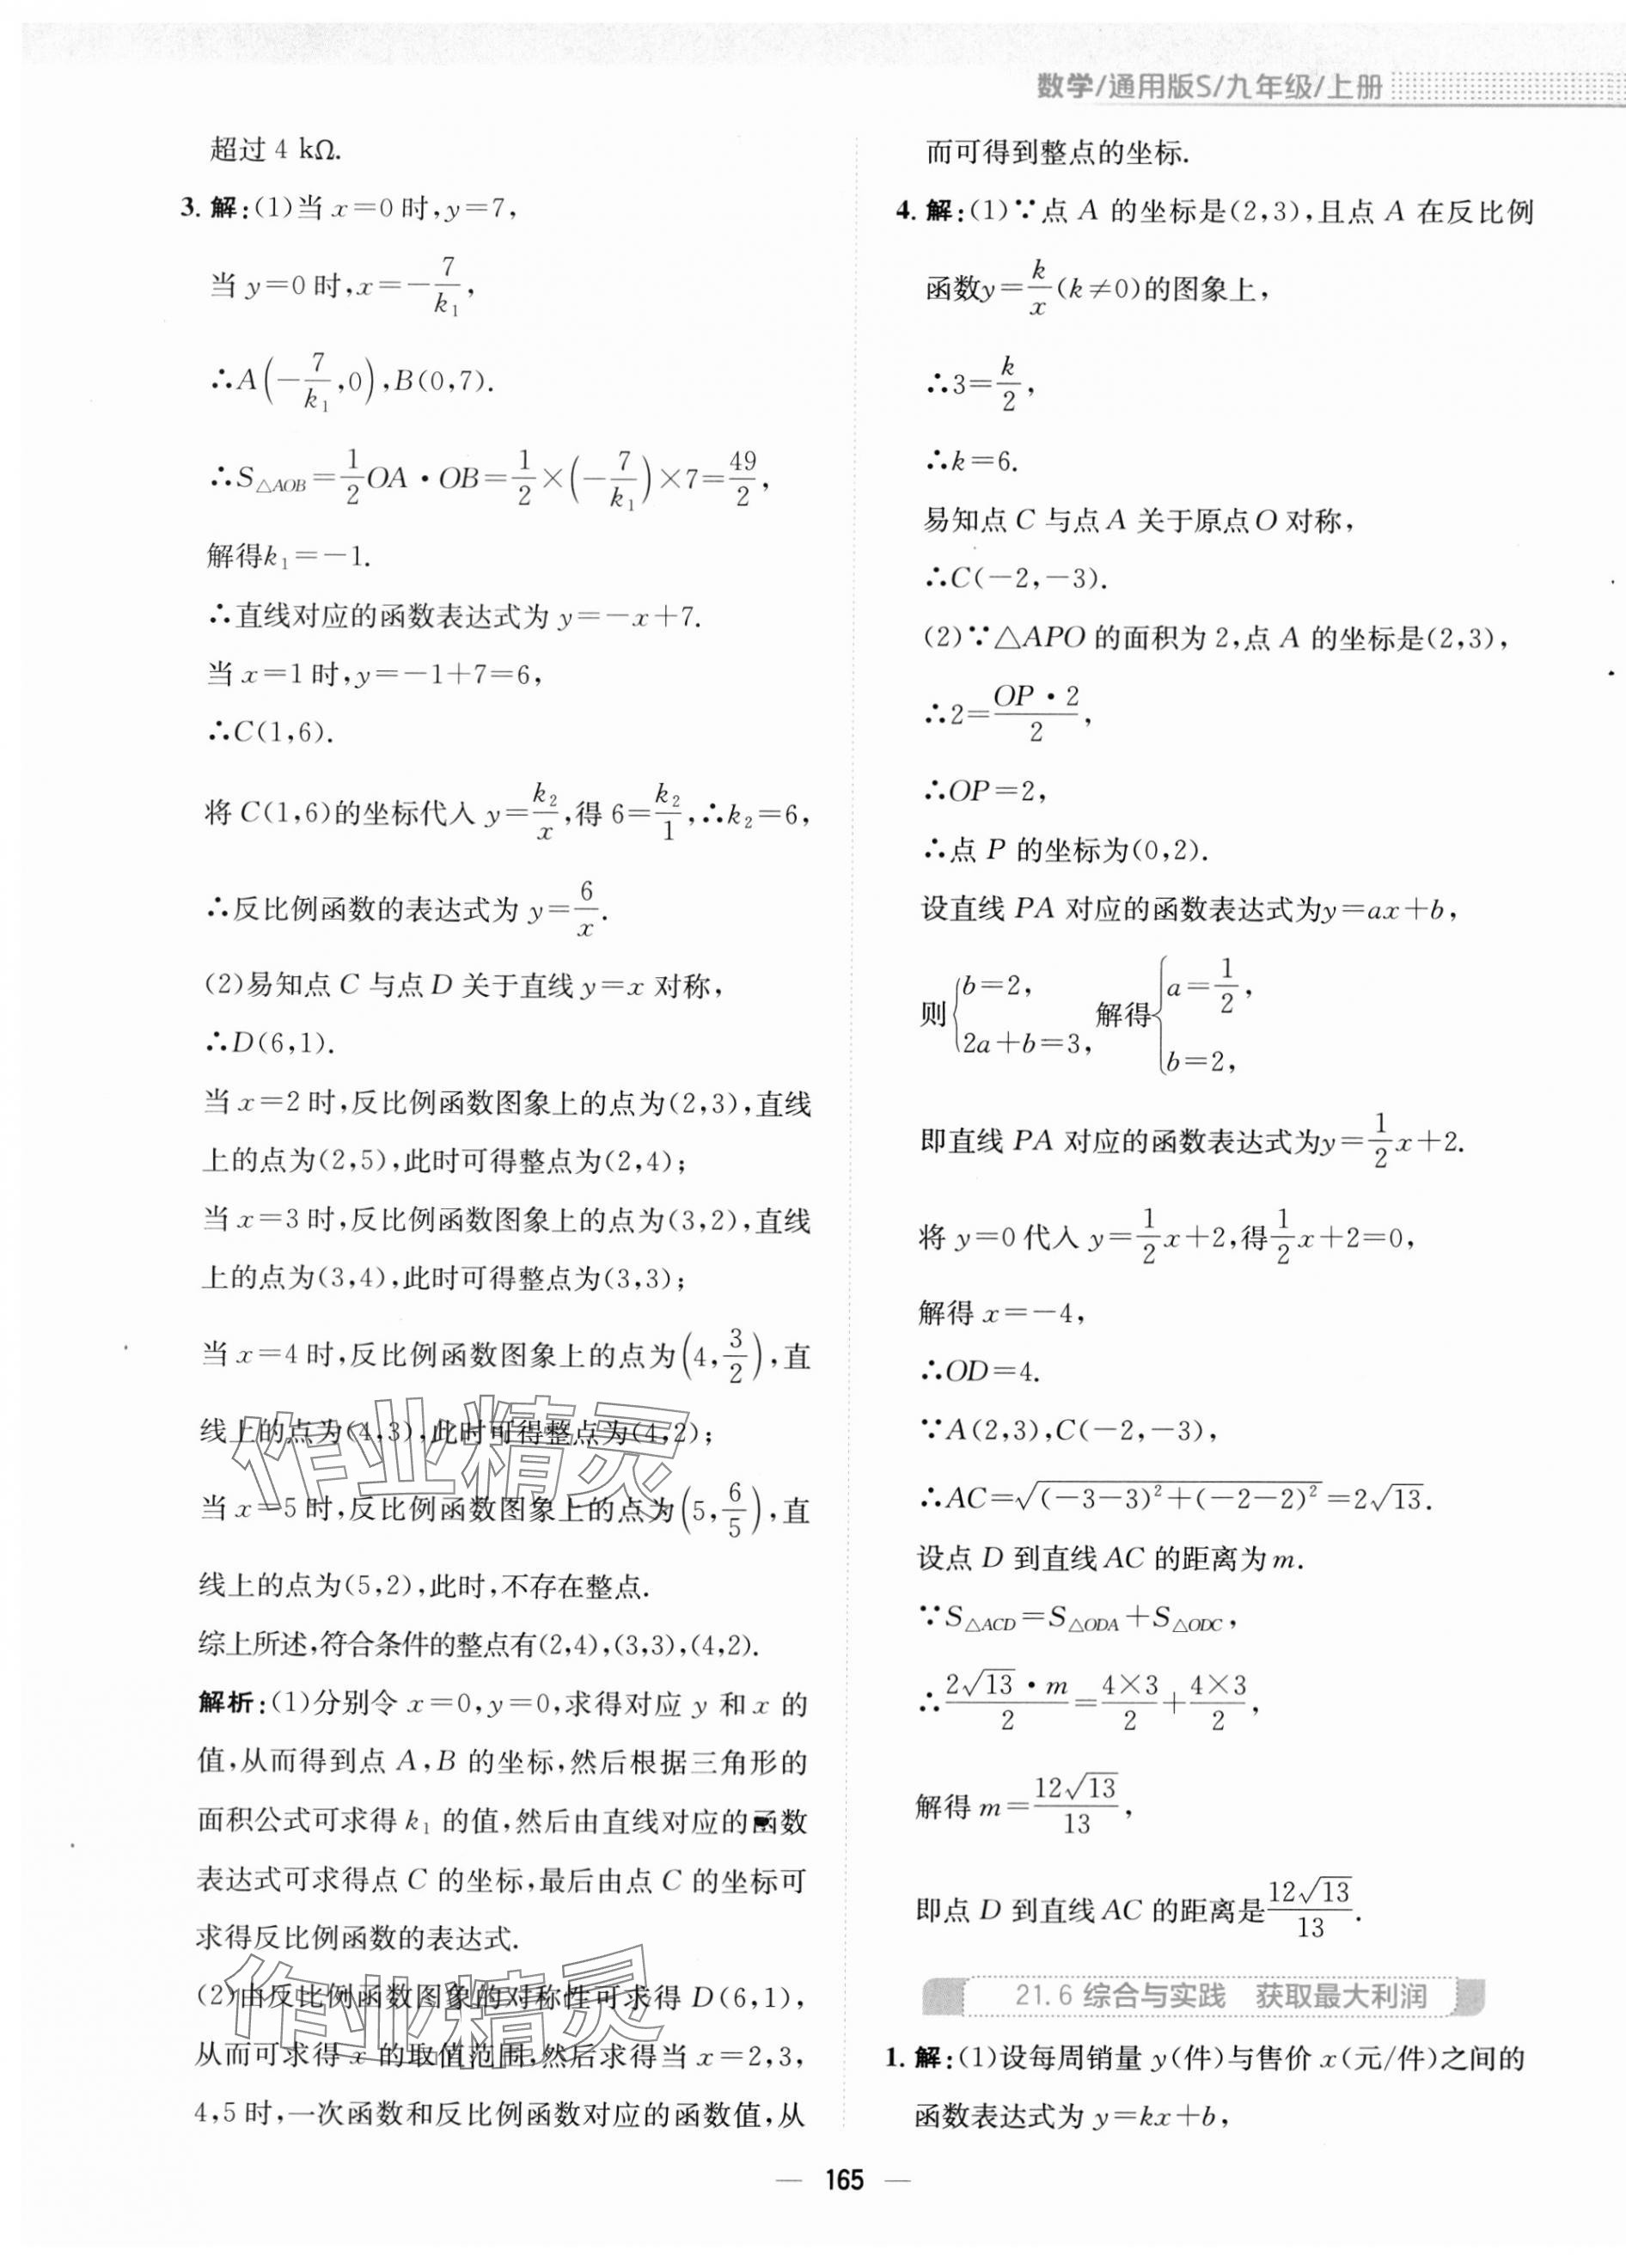 数学/通用版S/九年级/上册
超过 4 kΩ.
3. 解:(1)当 x=0 时,y=7,
当 y=0 时,x=-7/k₁,
∴A(-7/k₁,0),B(0,7).
∴S△AOB=1/2OA·OB=1/2×(-7/k₁)×7=49/2,
解得k₁=-1.
∴直线对应的函数表达式为 y=-x+7.
当 x=1 时,y=-1+7=6,
∴C(1,6).
将 C(1,6)的坐标代入 y=k₂/x,得 6=k₂/1,∴k₂=6,
∴反比例函数的表达式为 y=6/x.
(2)易知点 C 与点 D 关于直线 y=x 对称,
∴D(6,1).
当 x=2 时,反比例函数图象上的点为(2,3),直线
上的点为(2,5),此时可得整点为(2,4);
当 x=3 时,反比例函数图象上的点为(3,2),直线
上的点为(3,4),此时可得整点为(3,3);
当 x=4 时,反比例函数图象上的点为(4,3/2),直
线上的点为(4,3),此时可得整点为(4,2);
当 x=5 时,反比例函数图象上的点为(5,6/5),直
线上的点为(5,2),此时,不存在整点.
综上所述,符合条件的整点有(2,4),(3,3),(4,2).
解析:(1)分别令 x=0,y=0,求得对应 y 和 x 的
值,从而得到点 A,B 的坐标,然后根据三角形的
面积公式可求得 k₁ 的值,然后由直线对应的函数
表达式可求得点 C 的坐标,最后由点 C 的坐标可
求得反比例函数的表达式.
(2)由反比例函数图象的对称性可求得 D(6,1),
从而可求得 x 的取值范围,然后求得当 x=2,3,
4,5 时,一次函数和反比例函数对应的函数值,从
而可得到整点的坐标.
4. 解:(1)∵点 A 的坐标是(2,3),且点 A 在反比例
函数y=k/x(k≠0)的图象上,
∴3=k/2,
∴k=6.
易知点 C 与点 A 关于原点 O 对称,
∴C(-2,-3).
(2)∵△APO 的面积为 2,点 A 的坐标是(2,3),
∴2=OP·2/2,
∴OP=2,
∴点 P 的坐标为(0,2).
设直线 PA 对应的函数表达式为y=ax+b,
则{b=2, 2a+b=3, 解得{a=1/2, b=2,
即直线 PA 对应的函数表达式为y=1/2x+2.
将 y=0 代入 y=1/2x+2,得1/2x+2=0,
解得 x=-4,
∴OD=4.
∵A(2,3),C(-2,-3),
∴AC=√((-3-3)²+(-2-2)²)=2√13.
设点 D 到直线 AC 的距离为 m.
∵S△ACD=S△ODA+S△ODC,
∴2√13·m/2=4×3/2+4×3/2,
解得 m=12√13/13,
即点 D 到直线 AC 的距离是12√13/13.
21.6 综合与实践 获取最大利润
1. 解:(1)设每周销量 y(件)与售价 x(元/件)之间的
函数表达式为 y=kx+b,
— 165 —
作业精灵
作业精灵